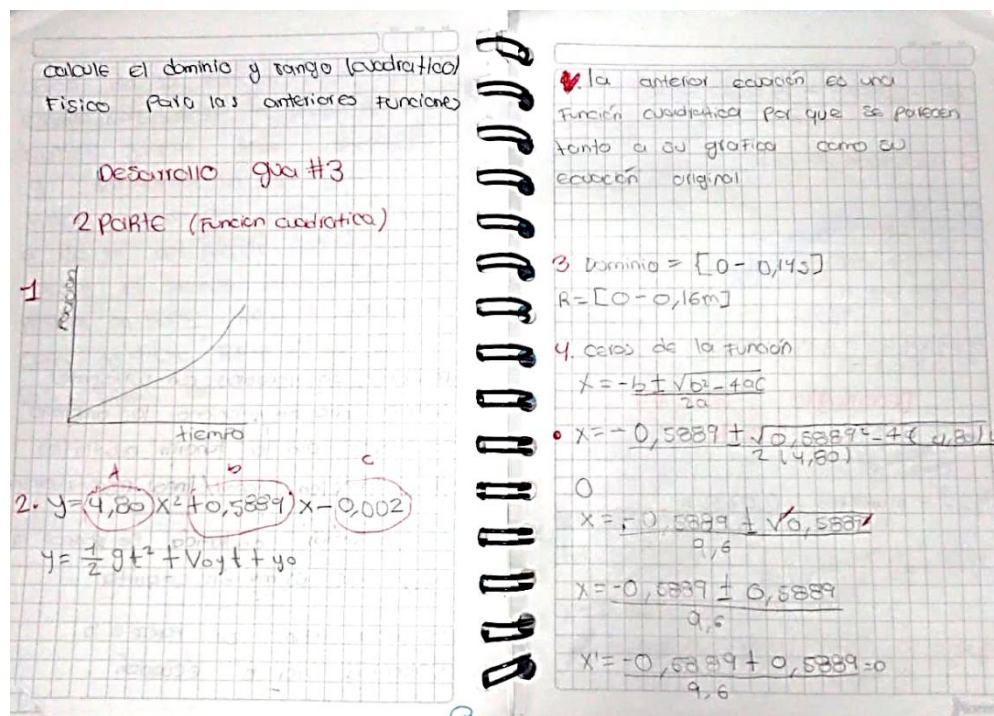 calcule el dominio y rango (cuadratico)
Fisico para las anteriores funciones
Desarrollo guia #3
2 PARTE (Funcion cuadratica)
1
posicion
tiempo
A b c
2. y= 4,80 x² + 0,5889 x - 0,002
y= 1/2 gt² + Voyt + yo
la anterior ecuación es una
Función cuadratica por que se parecen
tanto a su grafica como su
ecuación original
3 Dominio = [0 - 0,14s]
R = [0 - 0,16m]
4. ceros de la Función
x = -b ± √b² - 4ac / 2a
x = - 0,5889 ± √0,5889² - 4( 4,80) / 2(4,80)
0
x = - 0,5889 ± √0,5889 / 9,6
x = -0,5889 ± 0,5889 / 9,6
x' = -0,5889 + 0,5889 = 0 / 9,6